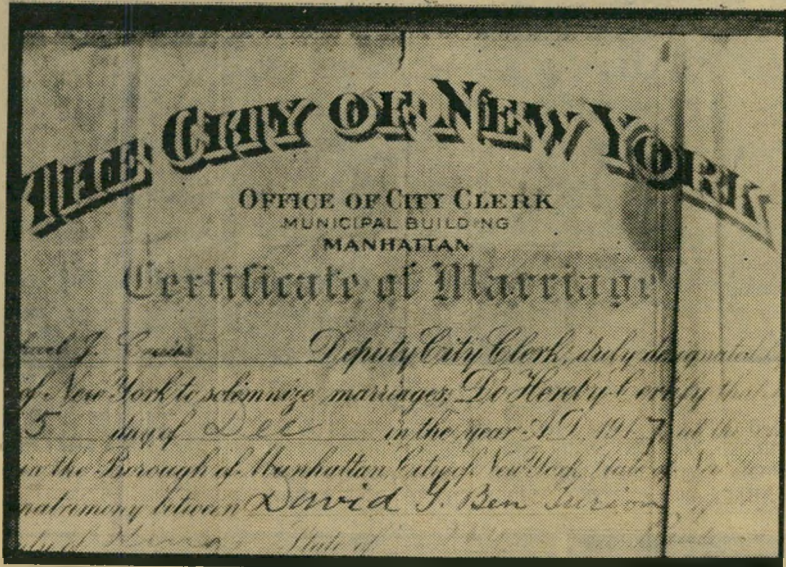 THE CITY OF NEW YORK
OFFICE OF CITY CLERK
MUNICIPAL BUILDING
MANHATTAN
Certificate of Marriage
J. Deputy City Clerk, duly designated
of New York to solemnize marriages, Do Hereby Certify that
5 day of Dec in the year A.D. 1917 at the
in the Borough of Manhattan, City of New York, State of New
matrimony between David G. Ben Gurion of
of Kings State of